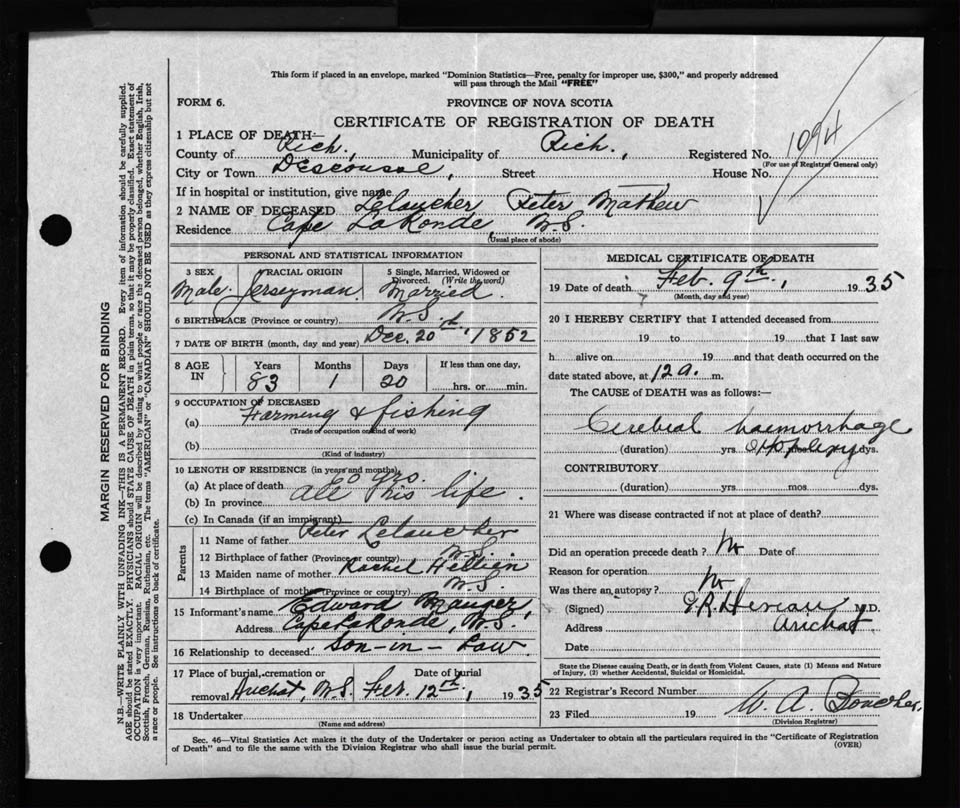 This form if placed in an envelope, marked "Dominion Statistics—Free, penalty for improper use, $300," and properly addressed
will pass through the Mail "FREE"
FORM 6.
PROVINCE OF NOVA SCOTIA
CERTIFICATE OF REGISTRATION OF DEATH
1 PLACE OF DEATH—
County of Rich., Municipality of Rich., Registered No. 1094
(For use of Registrar General only)
City or Town Descousse, Street House No.
If in hospital or institution, give name
2 NAME OF DECEASED Lelaucher Peter Mathew
Residence Cape LaRonde, N.S.
(Usual place of abode)
PERSONAL AND STATISTICAL INFORMATION
3 SEX Male
4 RACIAL ORIGIN Jerseyman
5 Single, Married, Widowed or Divorced. (Write the word) Married.
6 BIRTHPLACE (Province or country) N.S.
7 DATE OF BIRTH (month, day and year) Dec. 20th, 1852
8 AGE IN Years 83 Months 1 Days 20 If less than one day, hrs. or min.
9 OCCUPATION OF DECEASED
(a) Farming & fishing
(Trade of occupation or kind of work)
(b)
(Kind of industry)
10 LENGTH OF RESIDENCE (in years and months)
(a) At place of death 60 yrs.
(b) In province all his life.
(c) In Canada (if an immigrant)
Parents
11 Name of father Peter Lelaucher
12 Birthplace of father (Province or country) N.S.
13 Maiden name of mother Rachel
14 Birthplace of mother (Province or country) N.S.
15 Informant's name Edward Mauger,
Address Cape LaRonde, N.S.
16 Relationship to deceased Son-in-Law
17 Place of burial, cremation or removal Arichat, N.S. Date of burial Feb. 12th, 1935
18 Undertaker
(Name and address)
MEDICAL CERTIFICATE OF DEATH
19 Date of death Feb. 9th, 1935
(Month, day and year)
20 I HEREBY CERTIFY that I attended deceased from
19 to 19 that I last saw
h alive on 19 and that death occurred on the
date stated above, at 12 a. m.
The CAUSE of DEATH was as follows:—
Cerebral haemorrhage
(duration) yrs. mos. dys.
Apoplexy
CONTRIBUTORY
(duration) yrs. mos. dys.
21 Where was disease contracted if not at place of death?
Did an operation precede death? No Date of
Reason for operation
Was there an autopsy? No
(Signed) M.D.
Address Arichat.
Date
State the Disease causing Death, or in death from Violent Causes, state (1) Means and Nature
of Injury, (2) whether Accidental, Suicidal or Homicidal.
22 Registrar's Record Number
23 Filed 19 W. A.
(Division Registrar)
Sec. 46—Vital Statistics Act makes it the duty of the Undertaker or person acting as Undertaker to obtain all the particulars required in the "Certificate of Registration
of Death" and to file the same with the Division Registrar who shall issue the burial permit.
(OVER)
MARGIN RESERVED FOR BINDING
N.B.—WRITE PLAINLY WITH UNFADING INK—THIS IS A PERMANENT RECORD. Every item of information should be carefully supplied.
AGE should be stated EXACTLY. PHYSICIANS should STATE CAUSE OF DEATH in plain terms, so that it may be properly classified. Exact statement of
OCCUPATION is very important. RACIAL ORIGIN will be described by stating to what people or race the deceased person belonged, whether English, Irish,
Scottish, French, German, Russian, Ruthenian, etc. The terms "AMERICAN" or "CANADIAN" SHOULD NOT BE USED as they express citizenship but not
a race or people. See instructions on back of certificate.